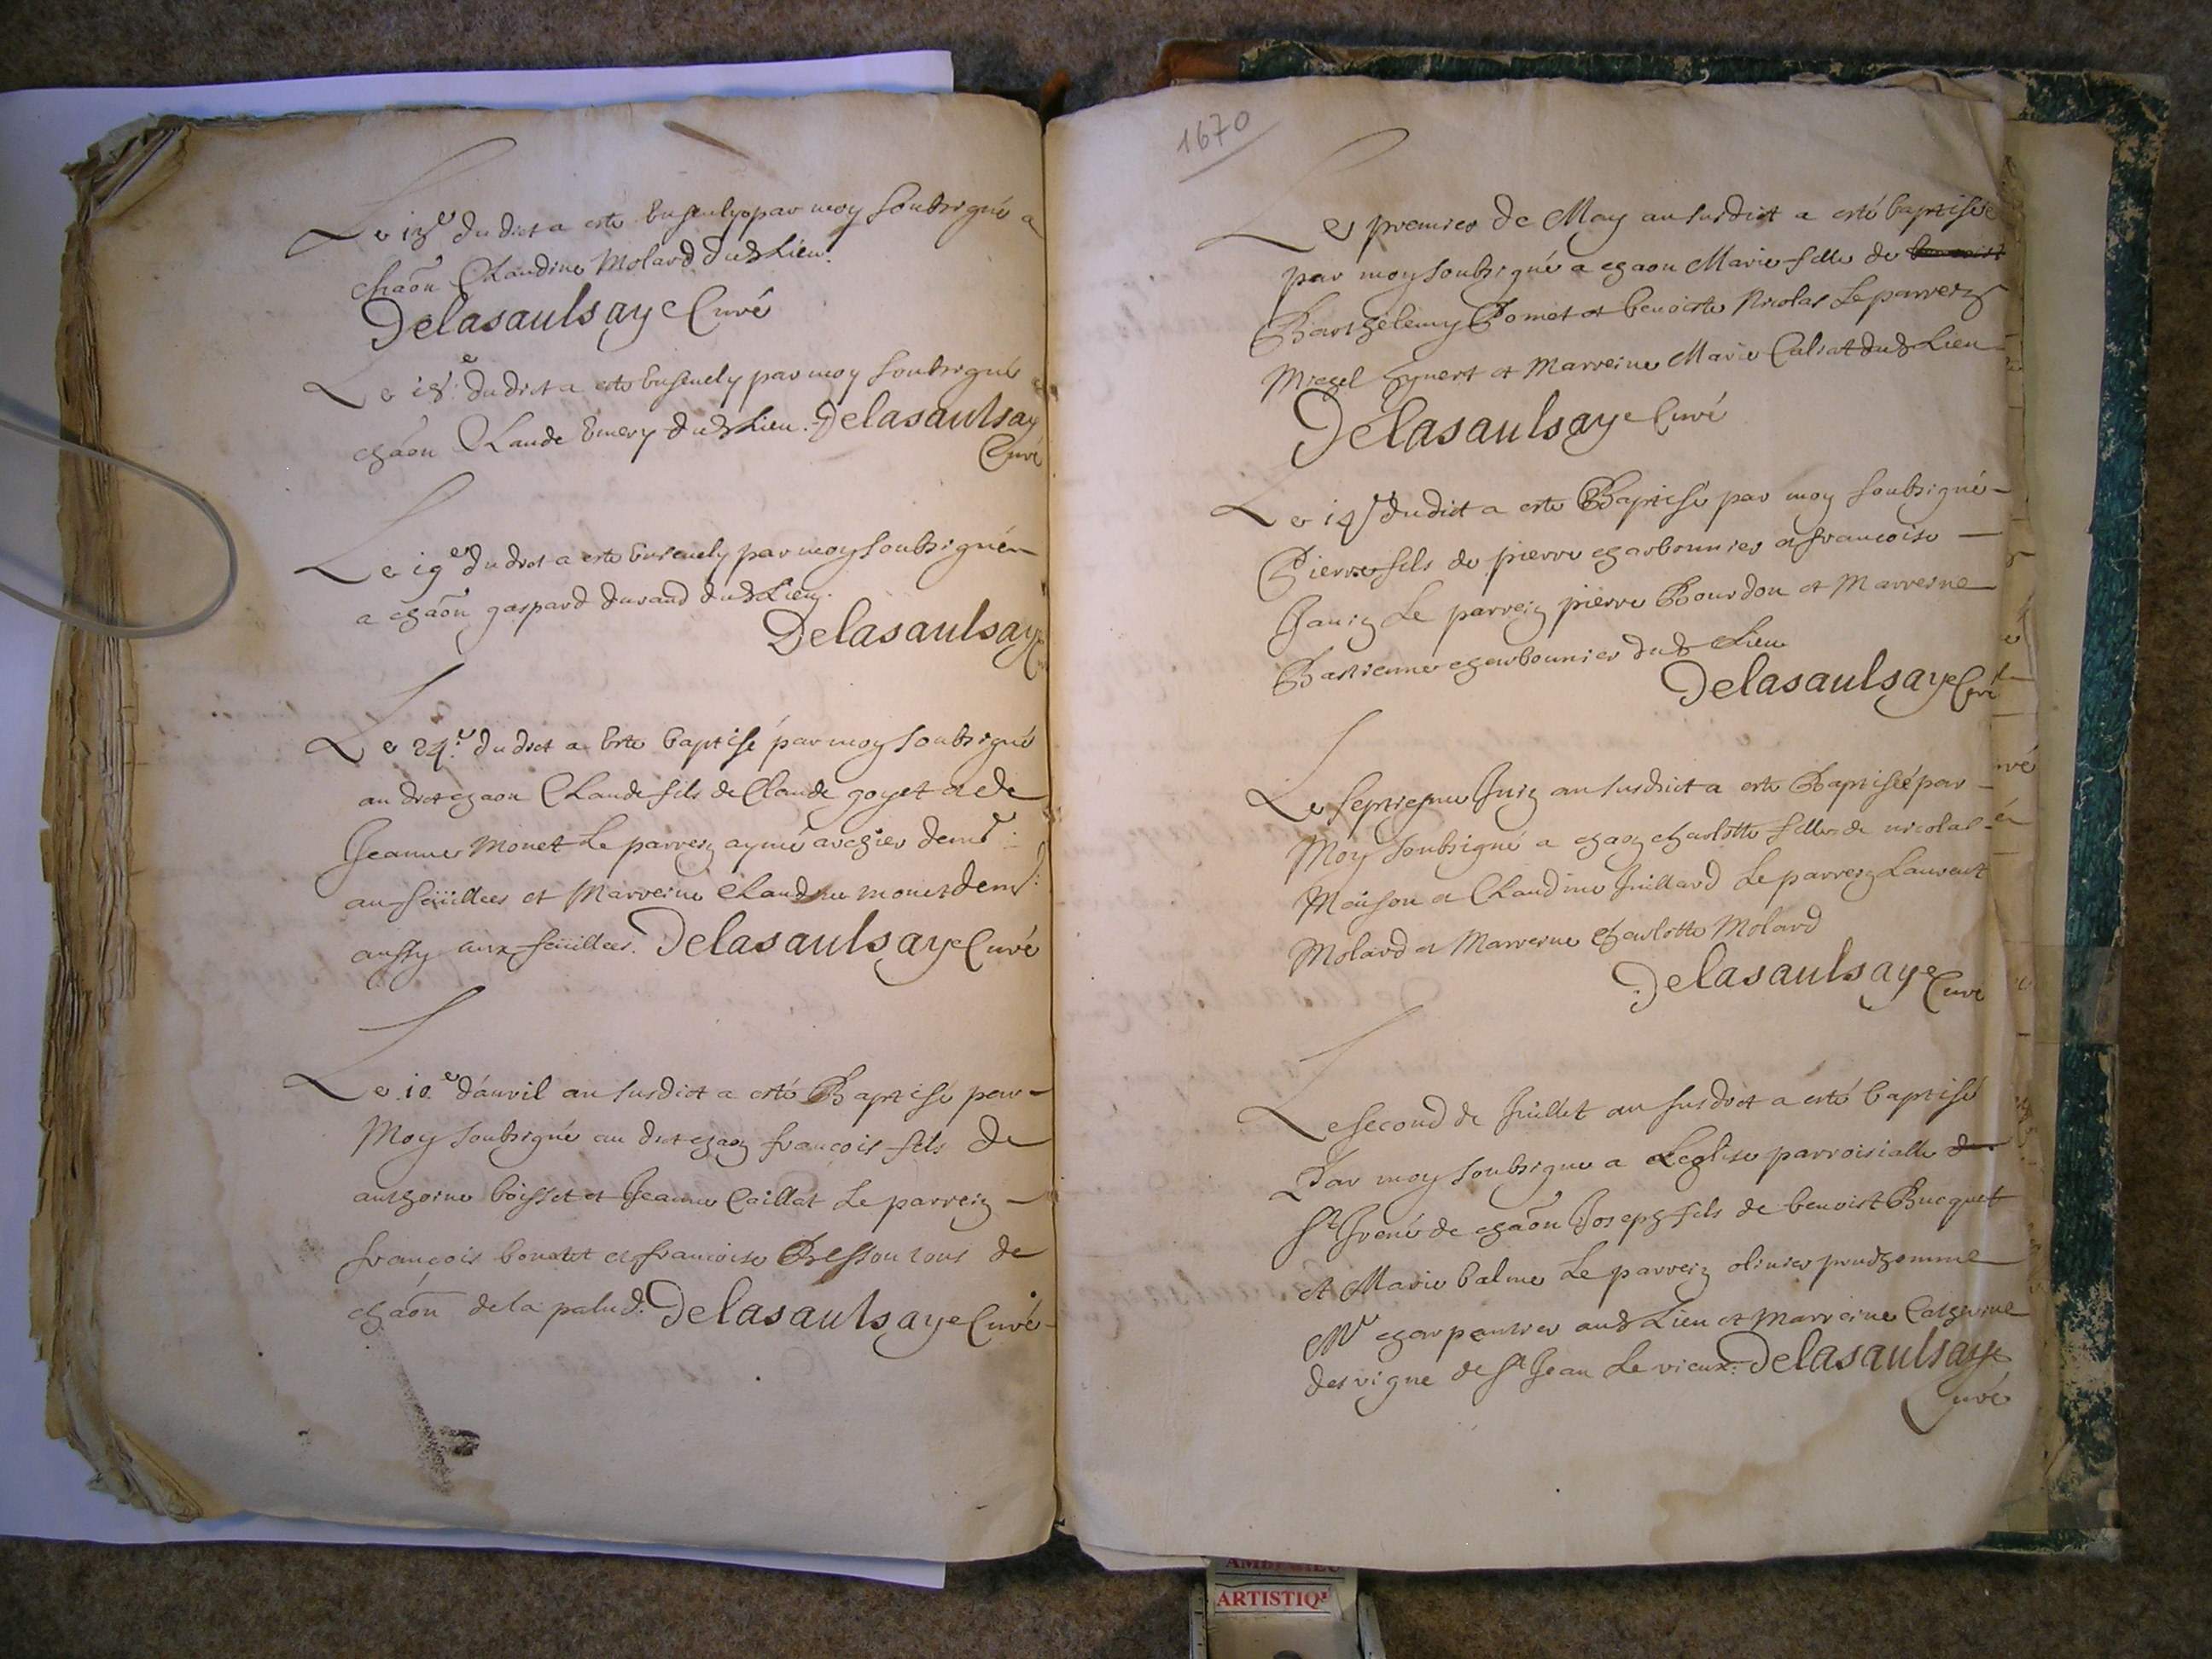 Le 13e du dict a este ensevely par moy soubsigné a
chaõn Claudine Molard dud Lieu.
Delasaulsaye Curé
Le 18e du dict a este ensevely par moy soubsigné
chaõn Claude Emery dud Lieu. Delasaulsay
Curé
Le 19e du dict a este ensevely par moy soubsigné
a chaõn gaspard durand dud Lieu.
Delasaulsaye
Le 24e du dict a este baptisé par moy soubsigné
au dict chaon Claude fils de Claude goyet et de
Jeanne Monet Le parrein aymé archier demt
au feüillees et Marreine Claudine monet demt
aussy aux feüillees. Delasaulsaye Curé
Le 10e d'auvril an susdict a esté Baptisé par
Moy soubsigné au dict chaon françois fils de
anthoine boisset et Jeanne Caillat Le parrein
françois et françoise Bresson tous de
chaõn de la palud. Delasaulsaye Curé
1670
Le premier de May an susdict a esté baptisée
par moy soubsigné a chaon Marie fille de benoist
Barthelemy Pomet et benoiste Nicolas Le parrein
Michel et Marreine Marie dud Lieu
Delasaulsaye Curé
Le 14e du dict a este Baptisé par moy soubsigné
Pierre fils de pierre charbonnier et françoise
Janin Le parrein pierre Bourdon et Marreine
Bastienne charbonnier dud Lieu
Delasaulsaye Curé
Le septiesme Juin an susdict a este Baptisée par
Moy soubsigné a chaon charlotte fille de nicolas
Moison et Claudine Juillard Le parrein Laurent
Molard et Marreine charlotte Molard
Delasaulsaye Curé
Le second de Juillet an susdict a esté baptisé
Par moy soubsigne a Leglise parroisialle de
St Irené de chaõn Joseph fils de benoist Bucquet
et Marie balme Le parrein olivier prudhomme
Mre charpantier aud Lieu et Marreine Catherine
desvigne de St Jean Le vieux. Delasaulsaye
Curé
ARTISTIQ